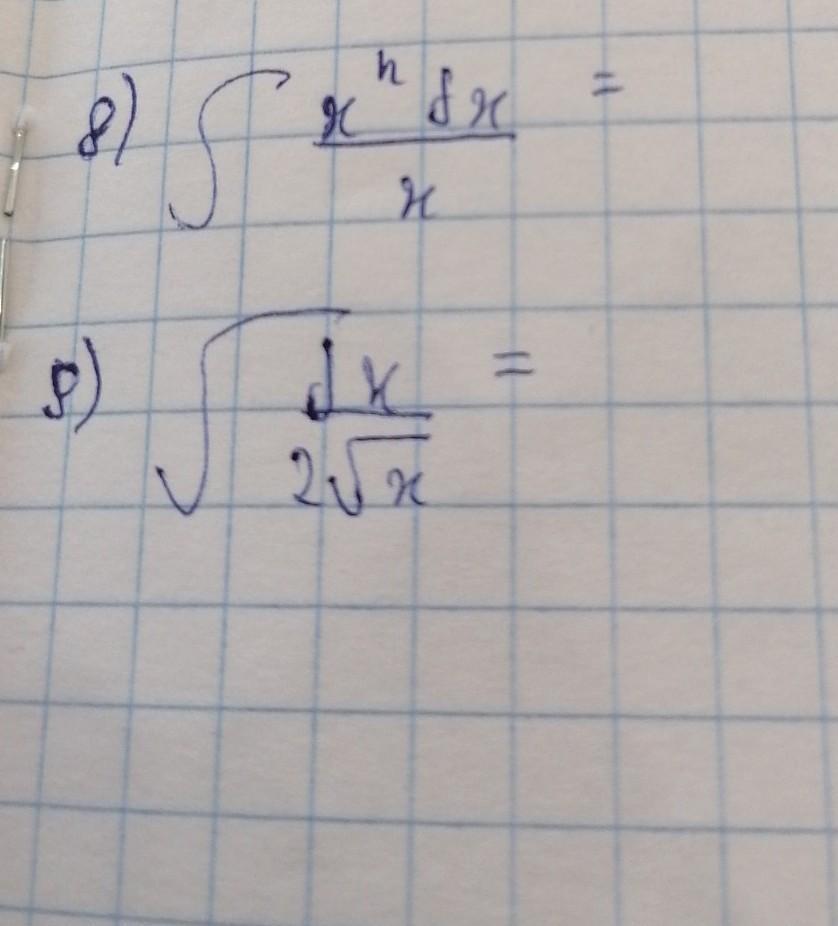 8) ∫ xⁿ dx / x =
9) ∫ dx / 2√x =